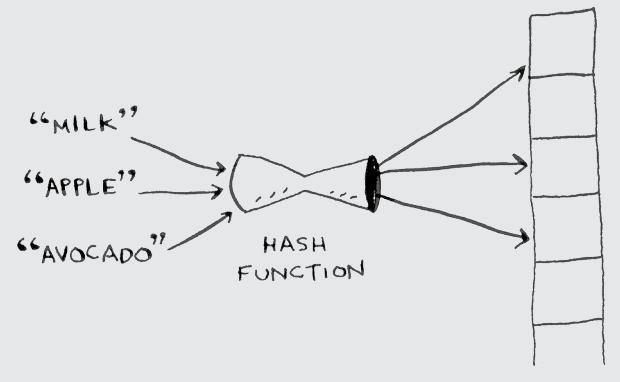 “MILK”
“APPLE”
“AVOCADO”
HASH
FUNCTION